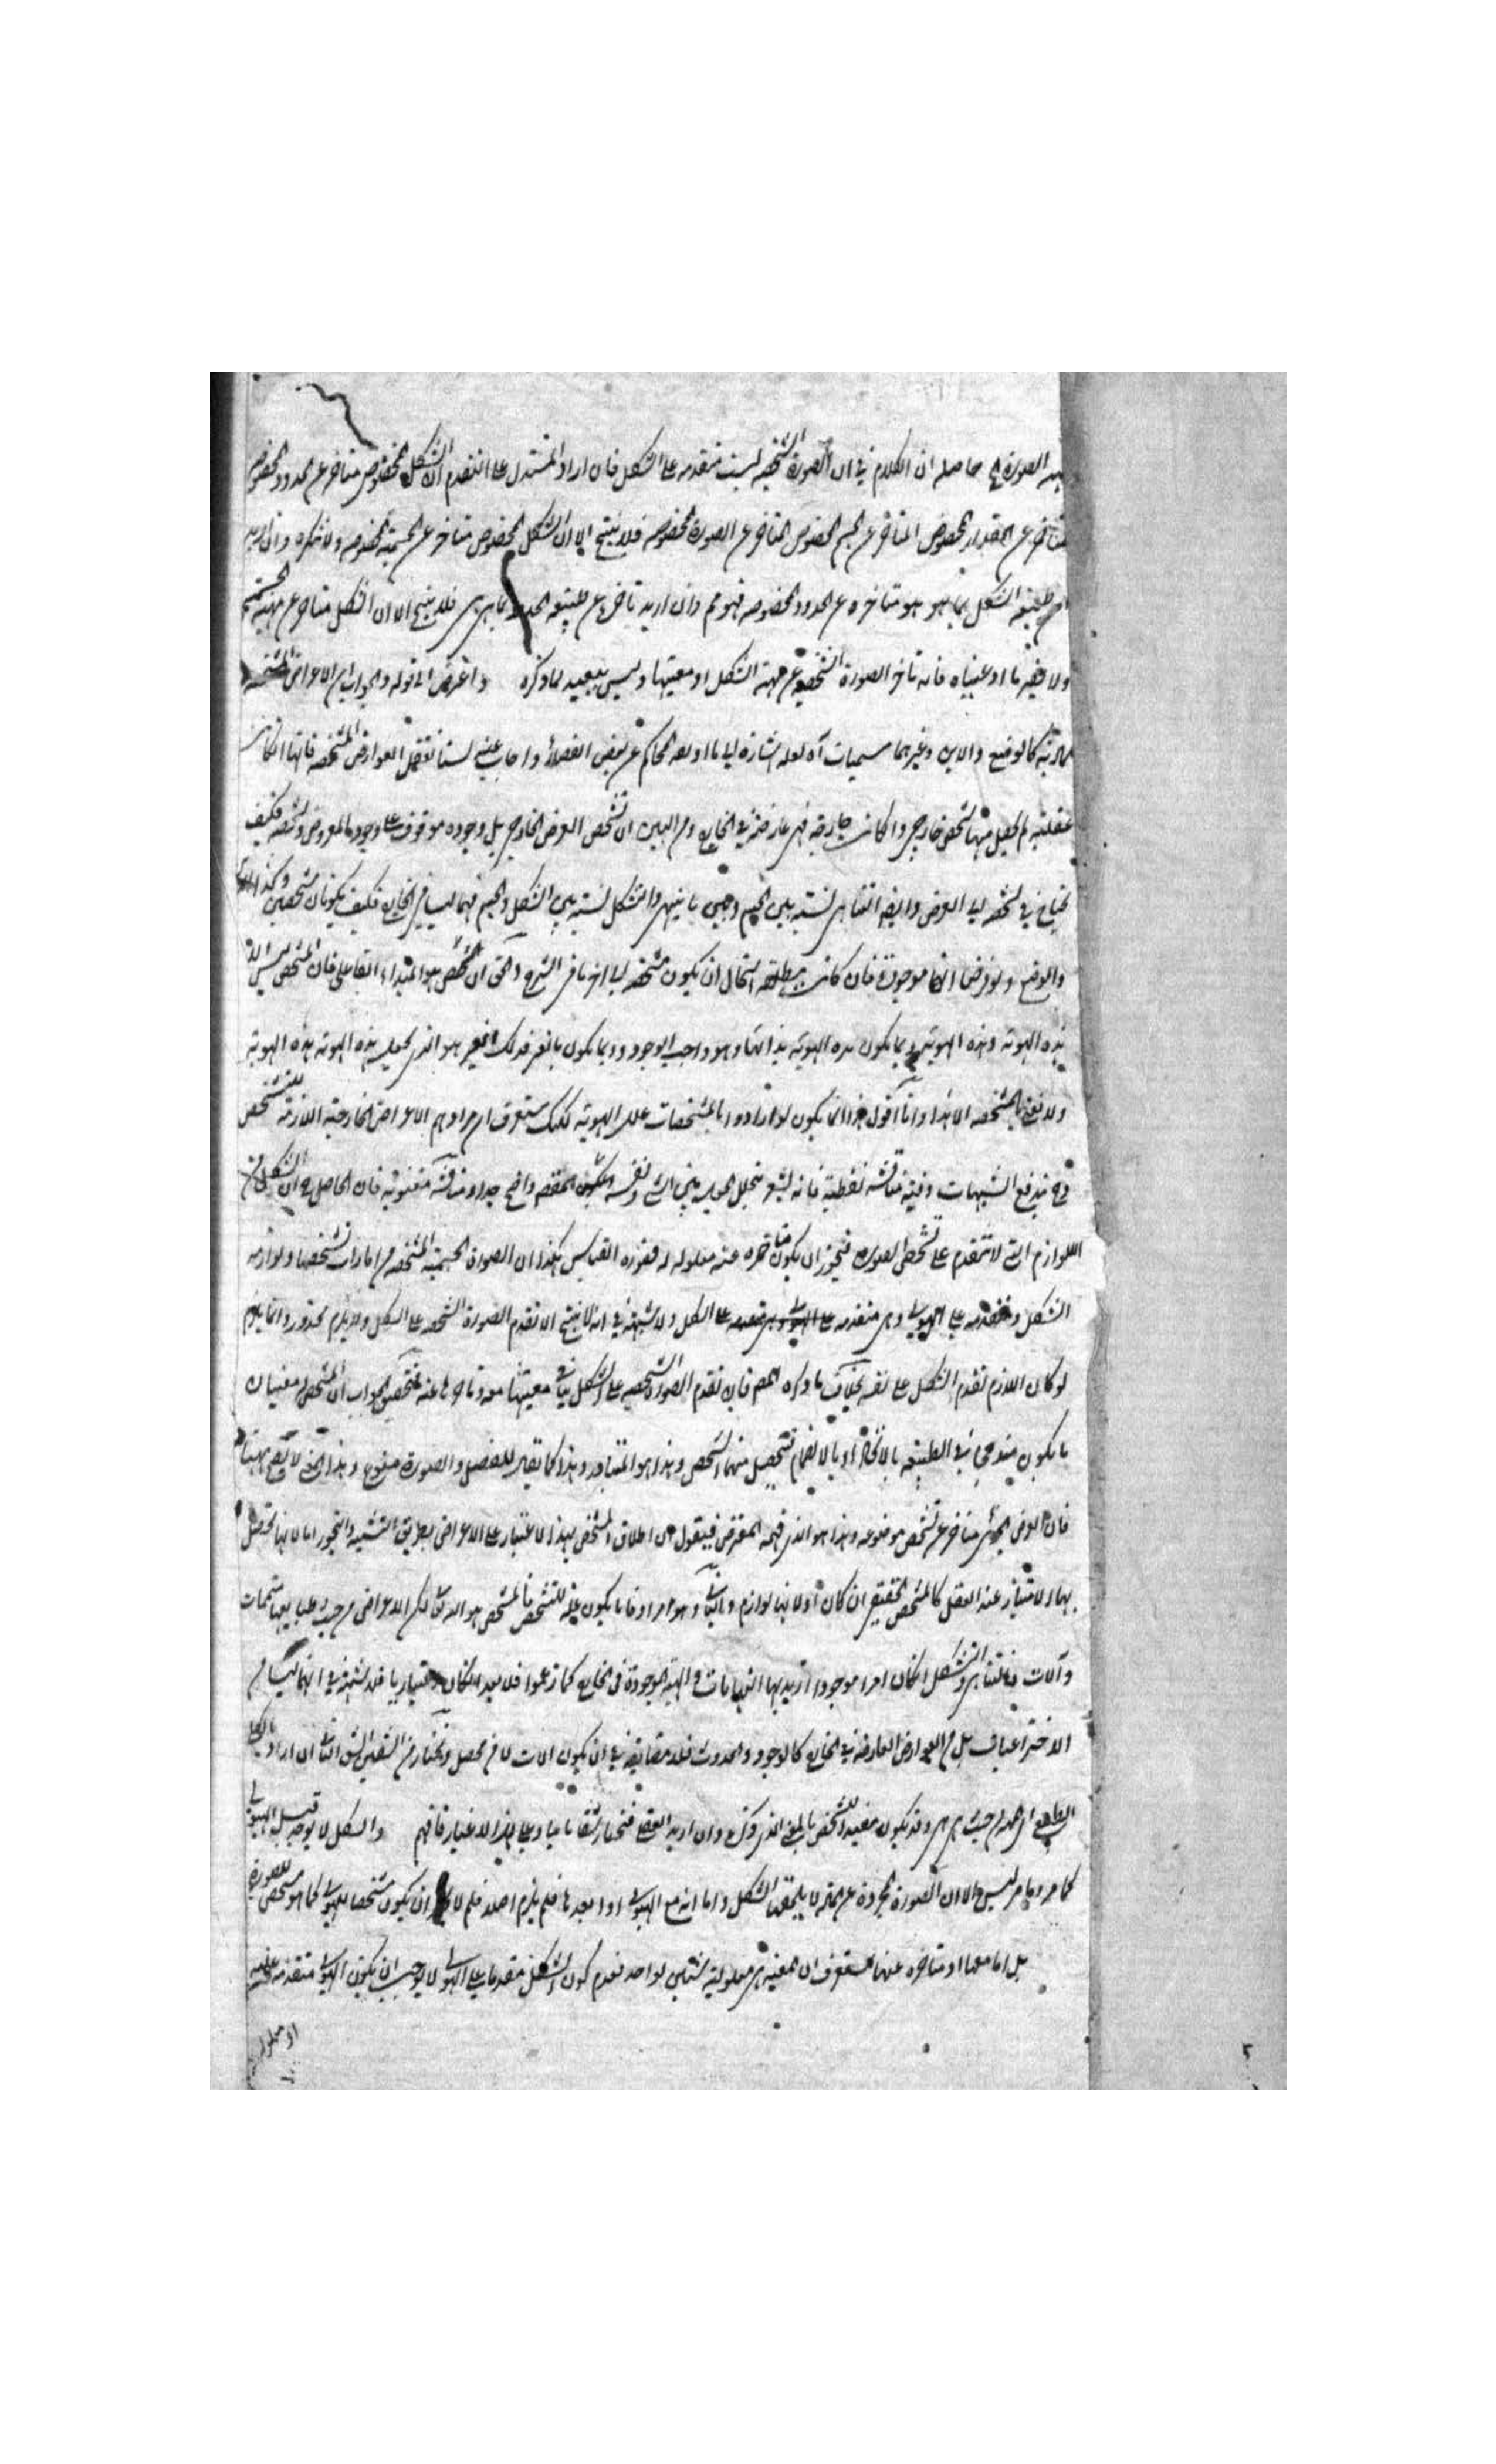 الصورة الخ حاصله ان الكلام في ان الصورة الشخصية ليست متقدمه على الشكل فان اراد المستدل على التقدم ان الشكل المخصوص متاخر عن الحدود المخصوصه
عن المقدار المخصوص المتاخر عن الجسم المخصوص المتاخر عن الصورة المخصوصه فلا ينتج الا ان الشكل المخصوص متاخر عن الجسمية المخصوصه ولا ننكره وان اريد
طبيعة الشكل بما هو هو متاخره عن الحدود المخصوصه فهو مم وان اريد تاخرها عن طبيعة الحدود بما هي هي فلا ينتج الا ان الشكل متاخر عن مهية الجسمية
ولا يضر ما ادعيناه فانه تاخر الصورة الشخصية عن مهية الشكل او معيتها وليس ببعيد لما ذكره واعترض الخ قوله والجواب ان الاعراض المشخصه
كالوضع والاين وغيرهما مسميات آه لعله اشارة الى ما اورده المحاكم عن بعض الفضلاء واجاب عنه لسنا نتعقل العوارض المشخصه فانها انكانت
عقلية لم يحصل منها شخص خارجي وا كانت خارجية فهي عارضة في الخارج ومن البين ان تشخص العرض الخارجي بل وجوده موقوف على وجود المعروض وتشخصه فكيف
يحتاج في تشخصه الى العرض وايضا التناهي نسبته بين الجسم وبين ما ينتهي والتشكل نسبته بين الشكل والجسم فهما ليسا في الخارج فكيف يكونان مشخصين وكذا الاين
والوضع ولو فرضنا انها موجودة فان كانت مطلقه استحال ان يكون مشخصه الى اخر ما في الشرح والحق ان المشخص هو المبداء الفاعل فان المشخص ليس الا
هذه الهوية وهذه الهوية ربما يكون هذه الهوية بذاتها وهو واجب الوجود وربما يكون بالغير فذلك الغير هو الذي يجعل هذه الهوية هذه الهوية
ولا نعني بالمشخصه الا هذا وانا اقول هذا انما يكون لو ارادوا بالمشخصات علل الهوية لكنك ستعرف ان مرادهم الاعراض الخارجية اللازمة للتشخص
وح يندفع الشبهات وفيه مناقشة لفظية فانه يشعر بتخلل الجعل بين الشئ ونفسه والمقصود واضح جدا ومناقشة معنوية فان الحاصل ح ان الشكل من
اللوازم التي لا تتقدم على تشخص الصورة فيجوز ان يكون متاخره عنه معلوله له فصورة القياس هكذا ان الصورة الجسمية المشخصه من امارات تشخصها ولوازمه
الشكل ومتقدمه على الهيولى وهي متقدمه على الشكل ولا شبهة في انه لا ينتج الا تقدم الصورة الشخصه على الشكل ولا يلزم محذور وانما يلزم
لو كان اللازم تقدم الشكل على نفسه بخلاف ما ذكره المص فان تقدم الصورة الشخصيه على الشكل ينافي معيتها معه وتاخرها عنه فتحقيق الجواب ان للمشخص معنيان
ما يكون مندمجا في الطبيعة بالاتحاد او بالانضمام فتحصل منهما الشخص وهذا هو المتبادر وهذا كما يقال للفصل والصورة منوع وهذا المعنى لا يقع ههنا
فان العرض الجزئي متاخر عن تشخص موضوعه وهذا هو الذي فهمه المعترض فيقول ان اطلاق المشخص بهذا الاعتبار على الاعراض بطريق التشبيه والتجوز اما لانها تحصل
بها الامتياز عند العقل كالمشخص الحقيقي ان كان اولا لانها لوازم والثاني وهو مرادنا ما يكون علة للتشخص فالمشخص هو الله تعالى لكن الاعراض من حيث طبايعها متممات
وآلات فالتناهي والتشكل انكان امرا موجودا اريد بها النهايات والهيئة الموجودة في الخارج كما زعموا فلا بعد وانكان اعتباريا فلا شبهة في انهما ليسا من
الاختراعيات بل من العوارض العارضه في الخارج كالوجود والحدوث فلا مضايقه في ان يكون الات لامر محصل ونختار من الشقين الشق الثاني ان اراد بالكلي
الطبيعه المرسله من حيث هي هي وقد يكون مفيدة للتشخص بالمعنى الذي ذكر وان اريد العقلي فنختار شقا ثالثا وهي بهذا الاعتبار فافهم والشكل لا يوجد قبل الهيولى
كما مر وما مر ليس الا ان الصورة المجردة عن الهيولى لا يلحقها الشكل واما انه مع الهيولى او بعدها فلم يلزم اصلا فلم لا يجوز ان يكون مشخصا للهيولى كما هو مشخص للصورة
بل اما معها او متاخره عنها ستعرف ان المعية هي معلولية شيئين لواحد فعدم كون الشكل مقدما على الهيولى لا يوجب ان يكون الهيولى متقدمه عليه
او معلوله